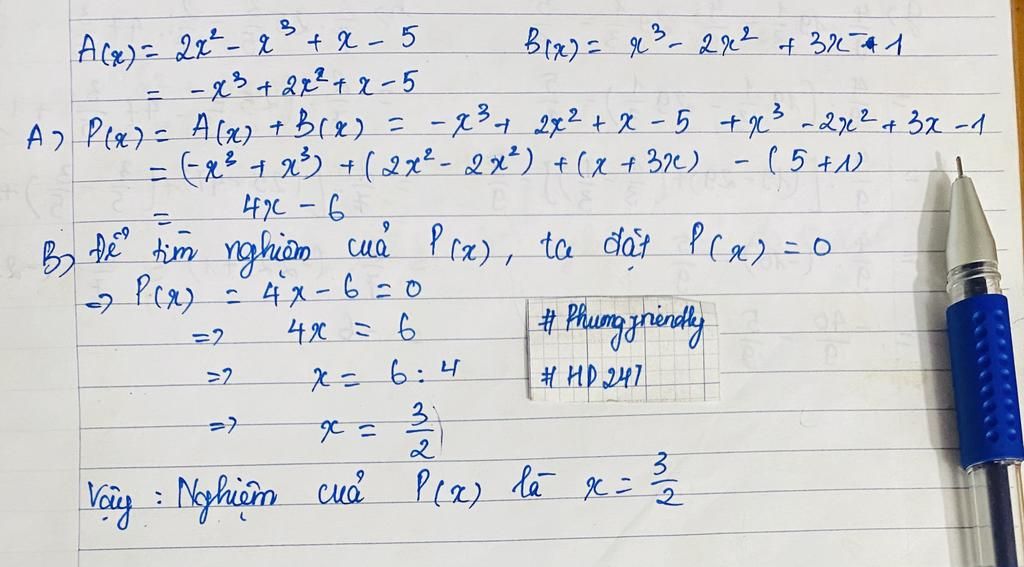 A(x) = 2x² - x³ + x - 5    B(x) = x³ - 2x² + 3x - 1
= -x³ + 2x² + x - 5
A) P(x) = A(x) + B(x) = -x³ + 2x² + x - 5 + x³ - 2x² + 3x - 1
= (-x³ + x³) + (2x² - 2x²) + (x + 3x) - (5 + 1)
= 4x - 6
B) Để tìm nghiệm cuả P(x), ta đặt P(x) = 0
=> P(x) = 4x - 6 = 0
=> 4x = 6
=> x = 6 : 4
=> x = 3/2
# Phungfriendly
# HD247
Vậy : Nghiệm cuả P(x) là x = 3/2